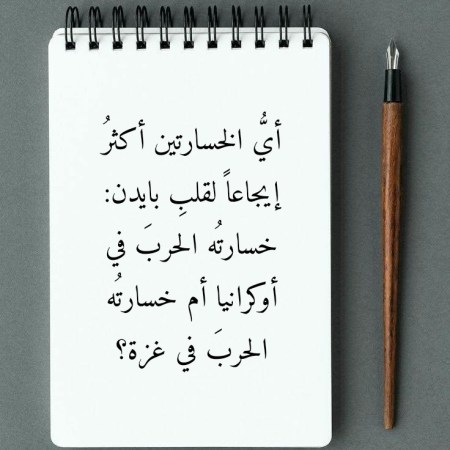 أيُّ الخسارتين أكثرُ
إيجاعاً لقلبِ بايدن:
خسارتُه الحربَ في
أوكرانيا أم خسارتُه
الحربَ في غزة؟